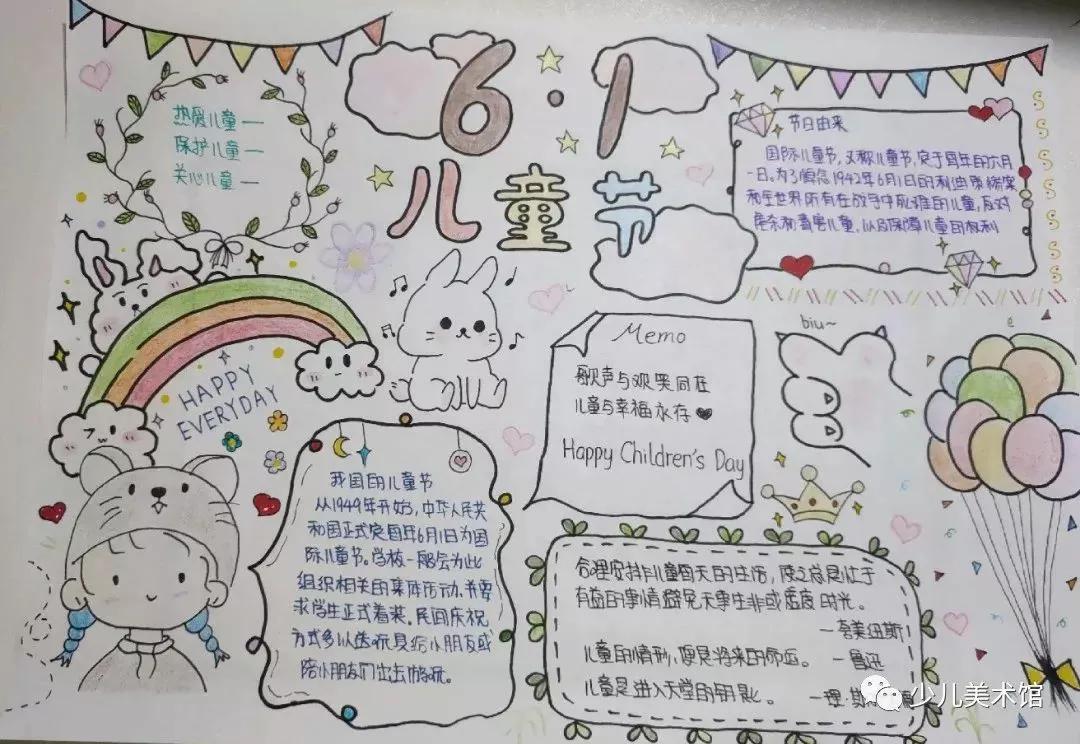 6·1
儿童节
热爱儿童—
保护儿童—
关心儿童—
节日由来
国际儿童节,又称儿童节,定于每年的六月
一日。为了悼念1942年6月1日的利迪策惨案
和全世界所有在战争中死难的儿童,反对
虐杀和毒害儿童,以及保障儿童的权利
HAPPY
EVERYDAY
Memo
歌声与欢笑同在
儿童与幸福永存
Happy Children's Day
biu~
我国的儿童节
从1949年开始,中华人民共
和国正式定每年6月1日为国
际儿童节。学校一般会为此
组织相关的集体活动,并要
求学生正式着装。民间庆祝
方式多以送玩具给小朋友或
陪小朋友们出去游玩。
合理安排儿童每天的生活,使之总是忙于
有益的事情避免无事生非或虚度时光。
—夸美纽斯
儿童的情形,便是将来的命运。 —鲁迅
儿童是进入天堂的钥匙。 —理·斯
少儿美术馆